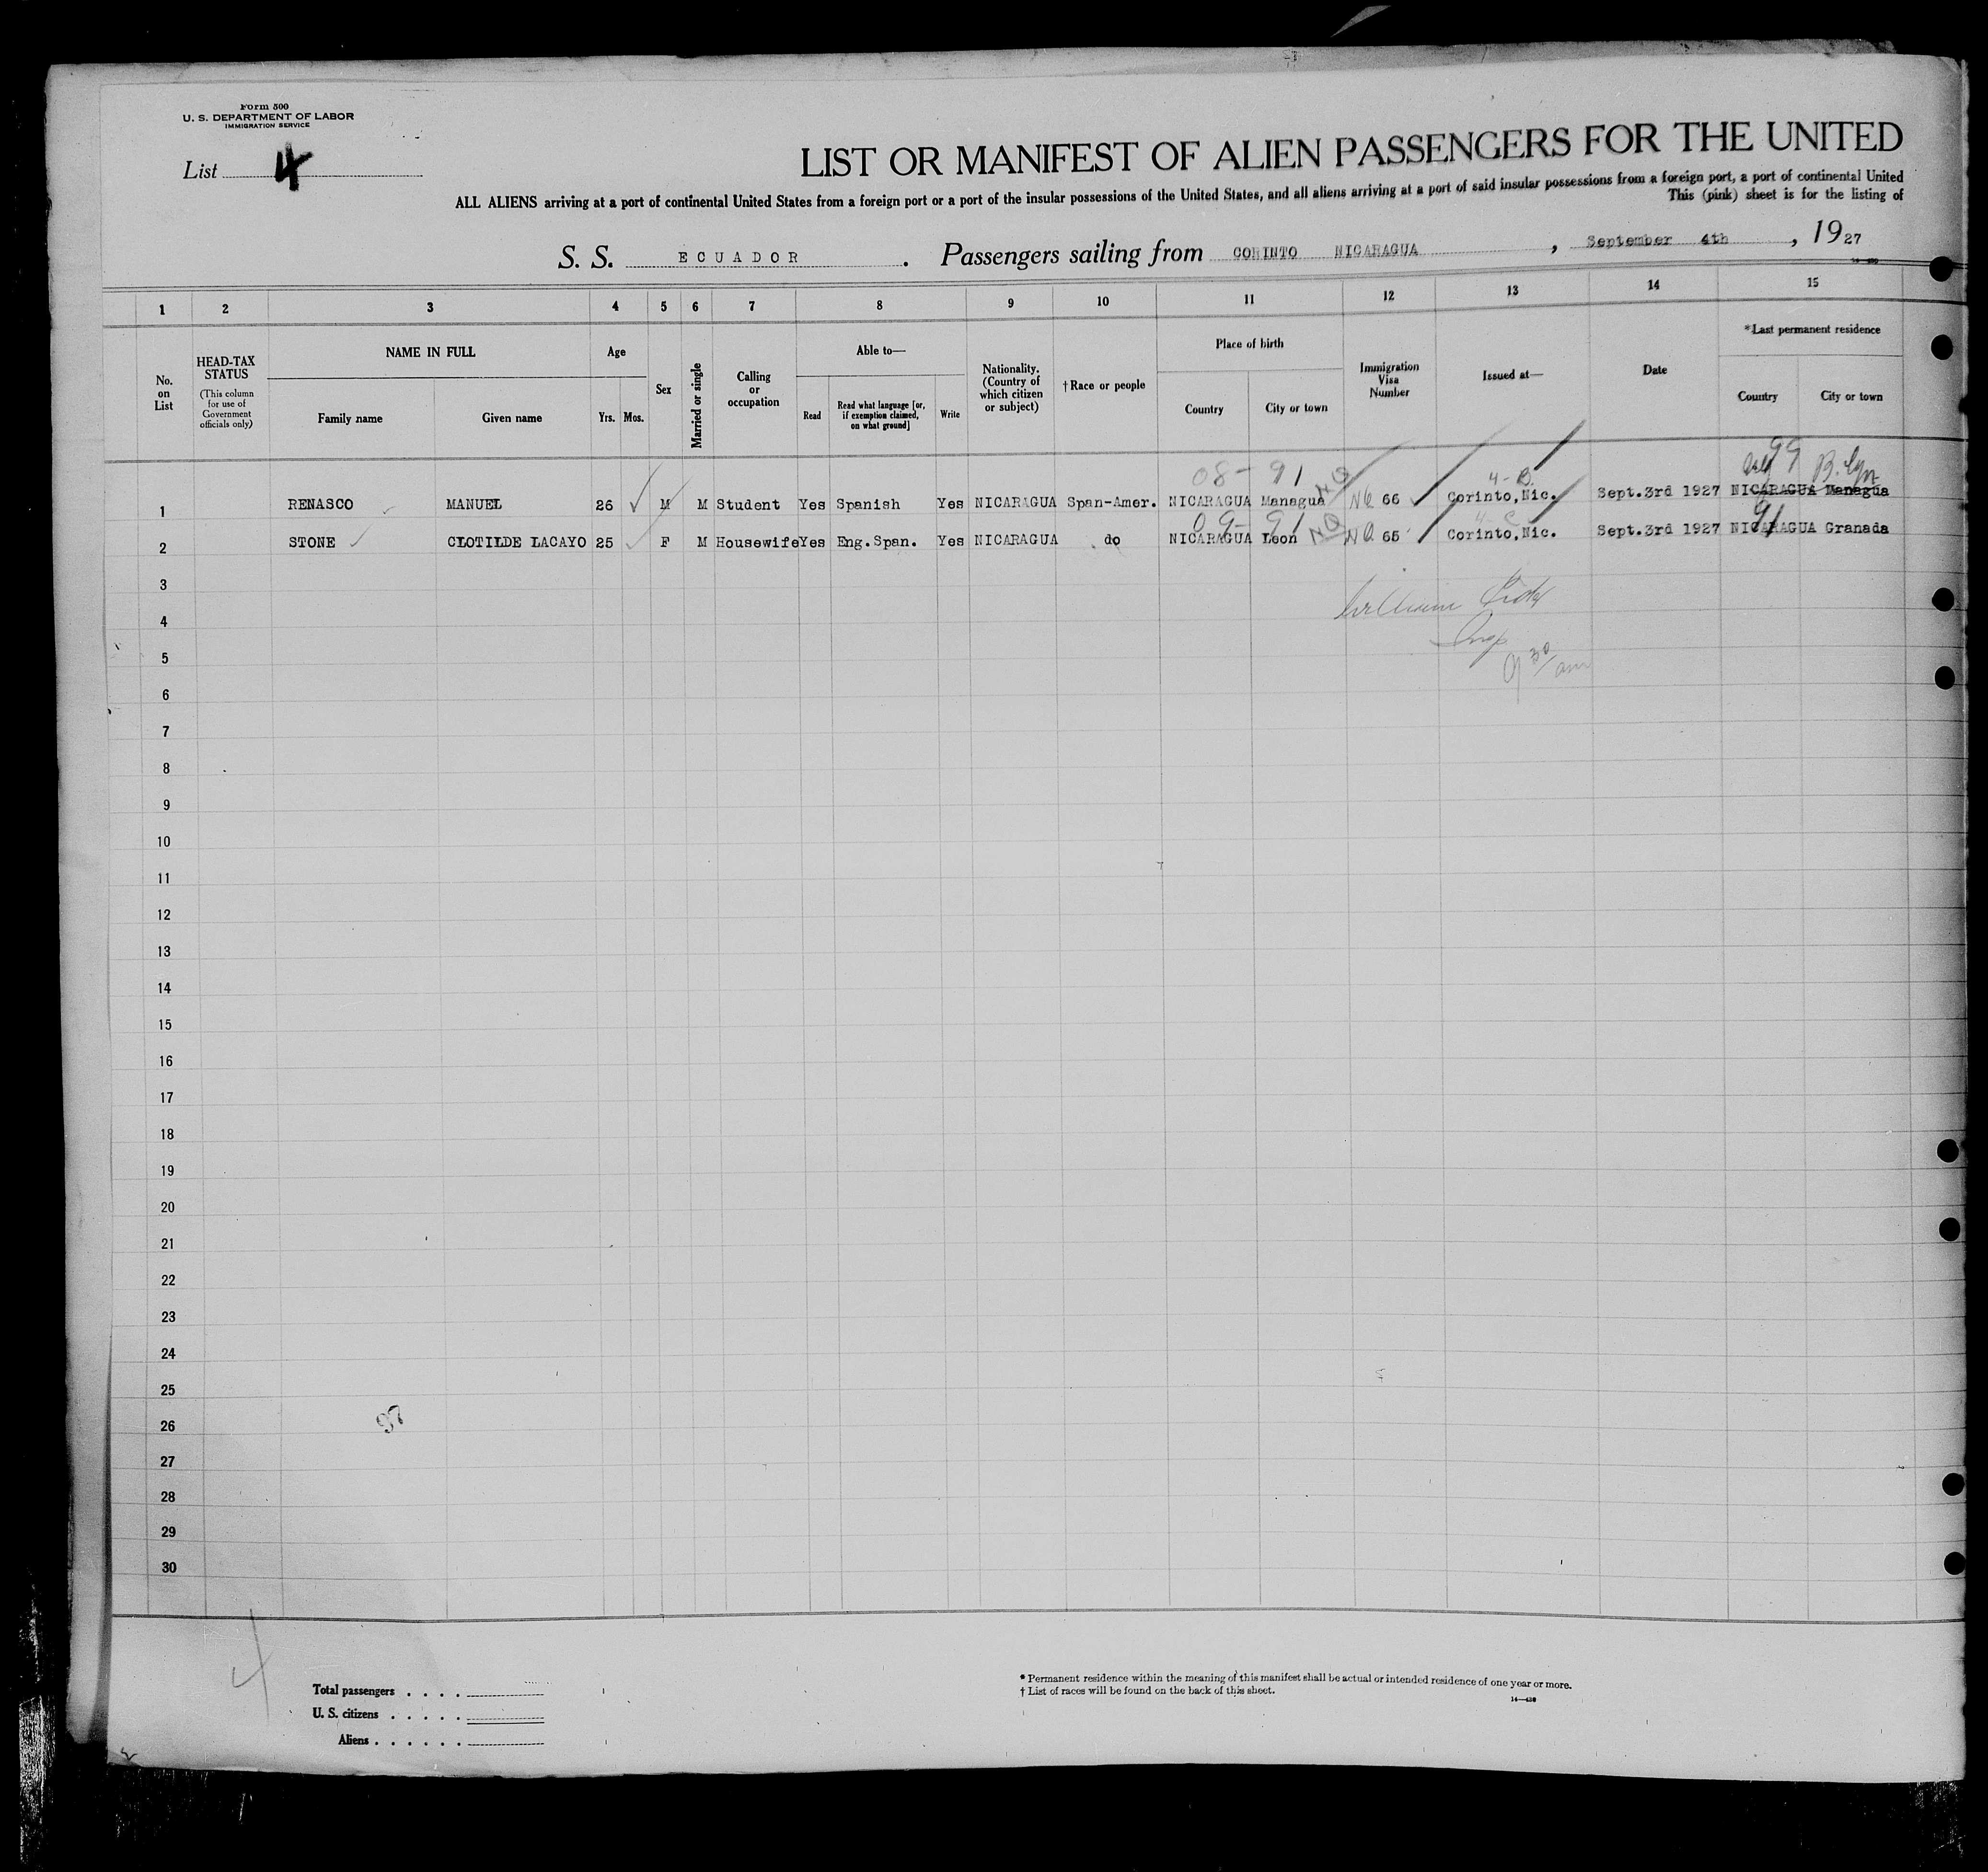 Form 500
U. S. DEPARTMENT OF LABOR
IMMIGRATION SERVICE
List 4
LIST OR MANIFEST OF ALIEN PASSENGERS FOR THE UNITED
ALL ALIENS arriving at a port of continental United States from a foreign port or a port of the insular possessions of the United States, and all aliens arriving at a port of said insular possessions from a foreign port, a port of continental United
This (pink) sheet is for the listing of
S. S. ECUADOR . Passengers sailing from CORINTO NICARAGUA , September 4th , 1927
1 2 3 4 5 6 7 8 9 10 11 12 13 14 15
No. on List
HEAD-TAX STATUS
(This column for use of Government officials only)
NAME IN FULL
Family name
Given name
Age
Yrs. Mos.
Sex
Married or single
Calling or occupation
Able to—
Read
Read what language [or, if exemption claimed, on what ground]
Write
Nationality. (Country of which citizen or subject)
†Race or people
Place of birth
Country
City or town
Immigration Visa Number
Issued at—
Date
*Last permanent residence
Country
City or town
08- 91 NQ 4-B 99
1 RENASCO MANUEL 26 M M Student Yes Spanish Yes NICARAGUA Span-Amer. NICARAGUA Managua NQ 66 Corinto,Nic. Sept.3rd 1927 NICARAGUA Managua
09- 91 NQ 91
2 STONE CLOTILDE LACAYO 25 F M Housewife Yes Eng.Span. Yes NICARAGUA do NICARAGUA Leon NQ 65 Corinto,Nic. Sept.3rd 1927 NICARAGUA Granada
3
4 William
5 Insp
9 30/am
6
7
8
9
10
11
12
13
14
15
16
17
18
19
20
21
22
23
24
25
26 97
27
28
29
30
4
Total passengers . . . .
U. S. citizens . . . . .
Aliens . . . . . .
* Permanent residence within the meaning of this manifest shall be actual or intended residence of one year or more.
† List of races will be found on the back of this sheet.